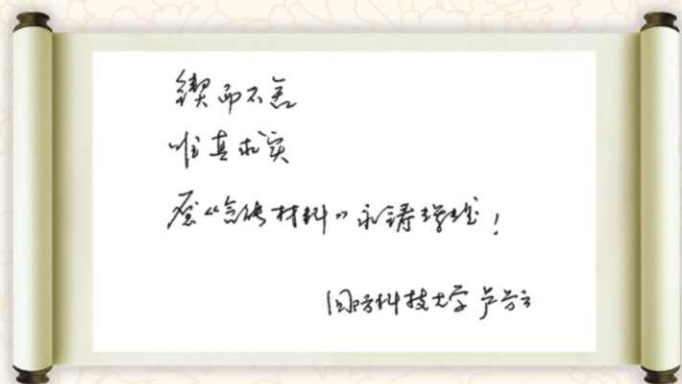 锲而不舍
唯真求实
愿《含能材料》永铸辉煌！
国防科技大学 卢芳云